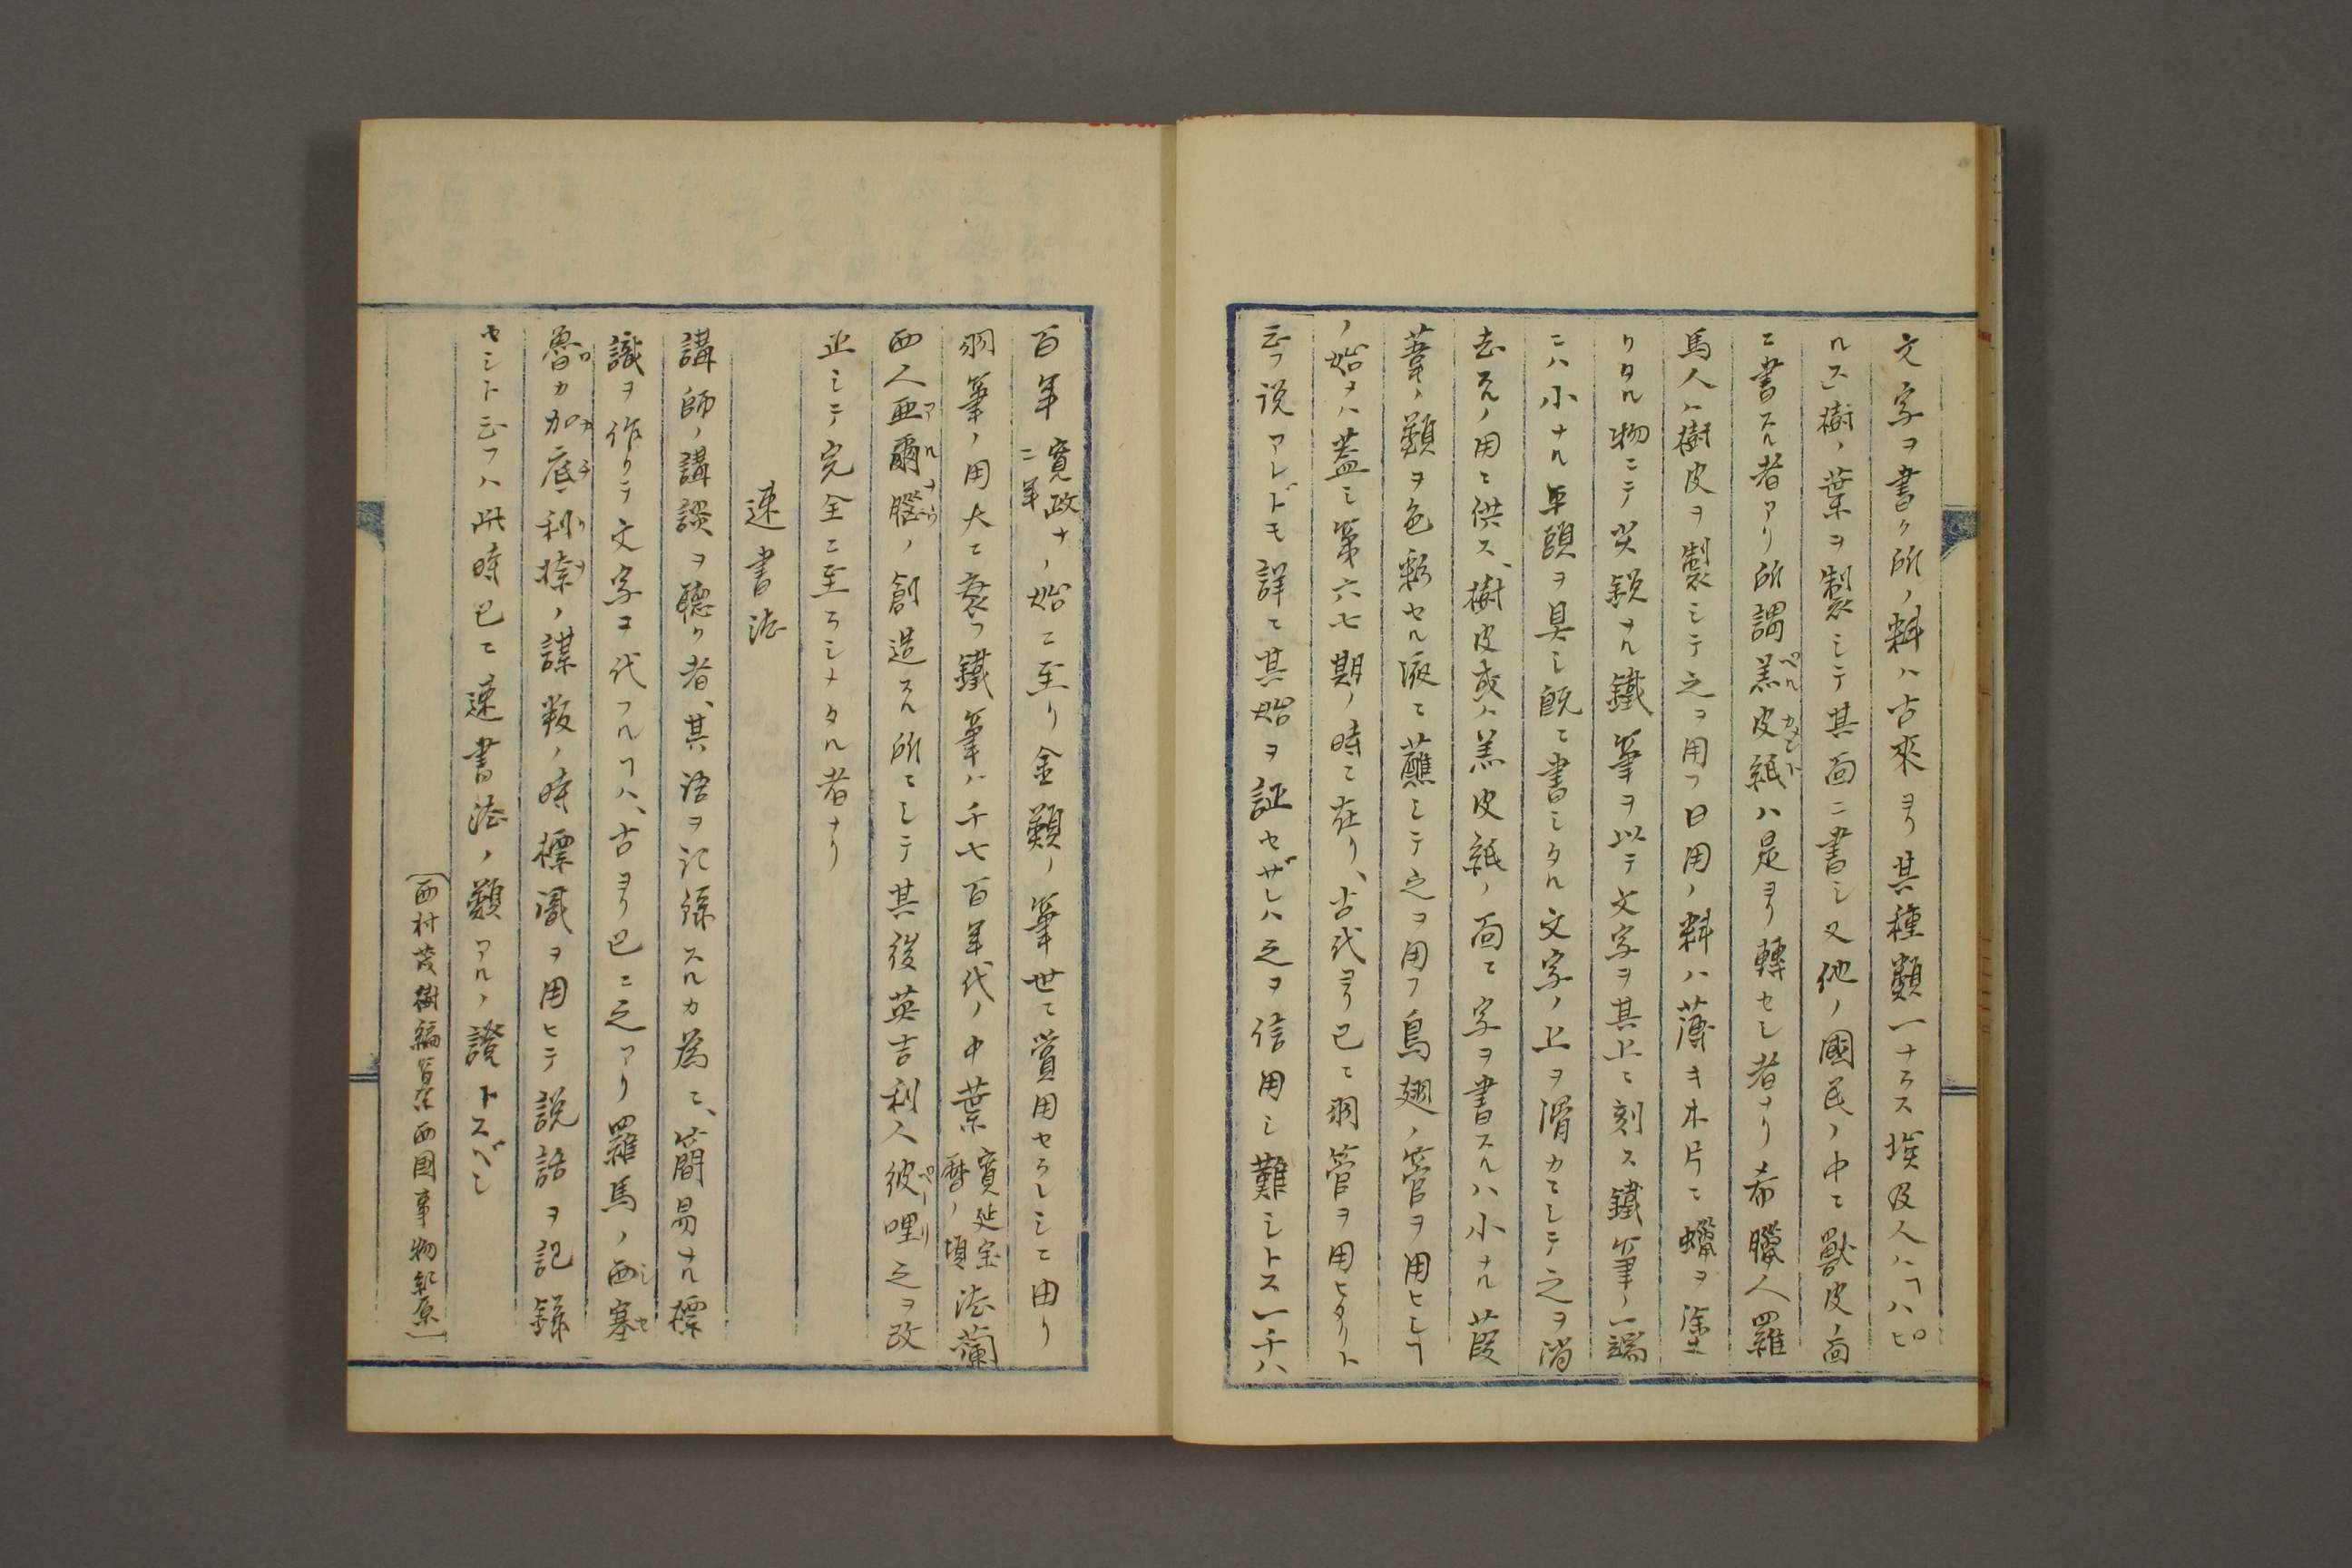 文字ヲ書ク所ノ料ハ古來ヨリ其種類一ナラス埃及人ハ「ハピ
ルス」樹ノ葉ヲ製シテ其面ニ書シ又他ノ國民ノ中ニ獸皮ノ面
ニ書スル者アリ所謂羔皮紙ハ是ヨリ轉セシ者ナリ希臘人羅
馬人ハ樹皮ヲ製シテ之ヲ用フ日用ノ料ハ薄キ木片ニ蠟ヲ塗
リタル物ニテ尖鋭ナル鐵筆ヲ以テ文字ヲ其上ニ刻ス鐵筆ノ一端
ニハ小ナル平頭ヲ具シ既ニ書シタル文字ノ上ヲ滑カニシテ之ヲ消
去スルノ用ニ供ス、樹皮或ハ羔皮紙ノ面ニ字ヲ書スルハ小ナル葭
葦ノ類ヲ色彩セル液ニ蘸シテ之ヲ用フ鳥翅ノ管ヲ用ヒシヿ
ノ始メハ蓋シ第六七期ノ時ニ在リ、古代ヨリ已ニ羽管ヲ用ヒタリト
云フ説アレドモ詳ニ其始ヲ証セザレハ之ヲ信用シ難シトス一千八
百年寛政十二年ノ始ニ至リ金類ノ筆世ニ賞用セラレシニ由リ
羽筆ノ用大ニ衰フ鐵筆ハ千七百年代ノ中葉寛延宝暦ノ頃法蘭
西人亜爾腦ノ創造スル所ニシテ其後英吉利人彼哩之ヲ改
正シテ完全ニ至ラシメタル者ナリ
速書法
講師ノ講談ヲ聽ク者、其語ヲ記録スルカ為ニ、簡易ナル標
識ヲ作リテ文字ニ代フルヿハ、古ヨリ已ニ之アリ羅馬ノ西塞
魯カ加底利捺ノ謀叛ノ時標識ヲ用ヒテ説話ヲ記録
セシト云フハ此時已ニ速書法ノ類アルノ證トスベシ
〔西村茂樹編纂西国事物紀原〕